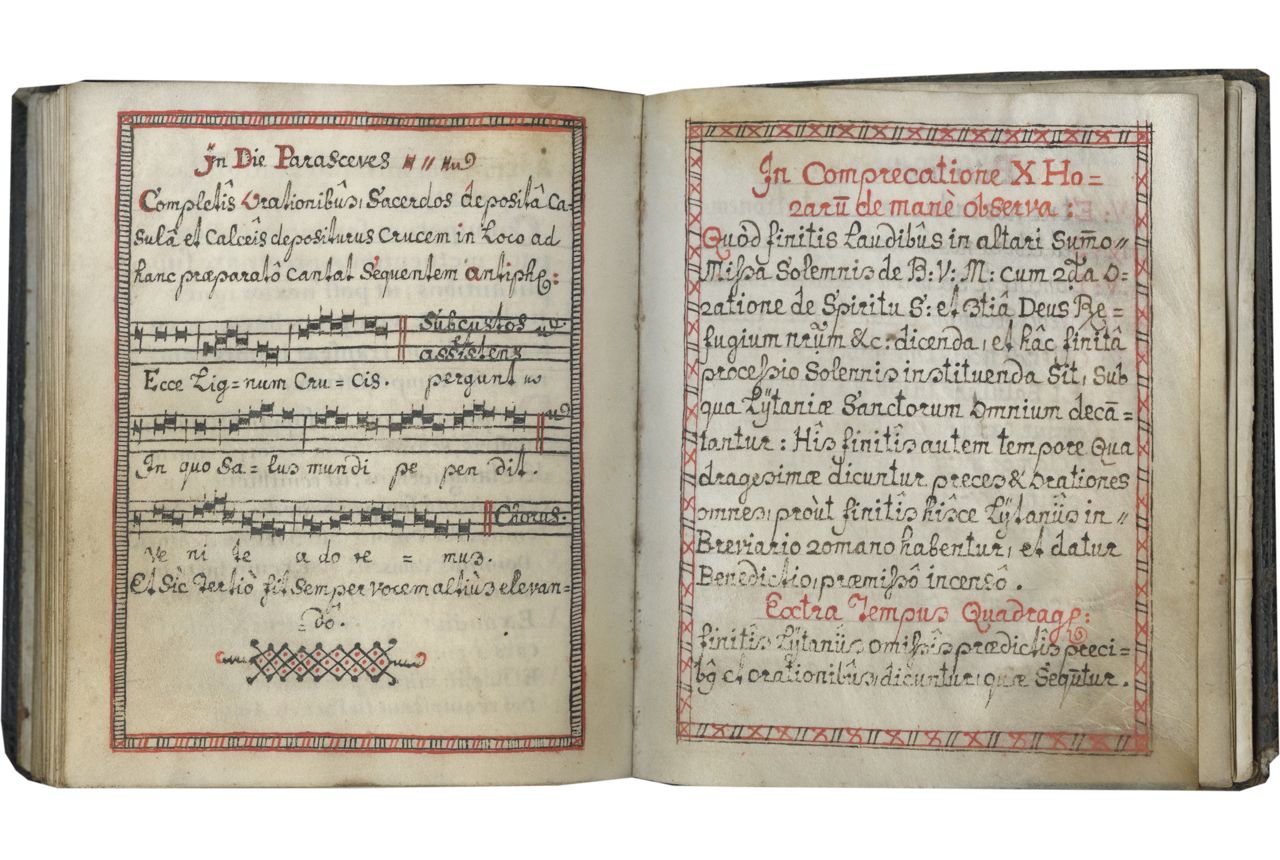 In Die Parasceves
Completîs Orationibûs, Sacerdos depositâ Ca=
sulâ et Calceîs depositurus Crucem in Loco ad
hanc præparatô cantat Sequentem antiph:
Subcustos
et
assistens
Ecce Lig=num Cru=cis. pergunt
In quo Sa=lus mundi pe pen dit.
Chorus.
Ve ni te a do re = mus.
Et Sic Tertiò fit Semper vocem altiùs elevan=
=dô.
In Comprecatione X Ho=
rarū de manè observa:
Quòd finitis Laudibûs in altari Sum̄o
Missa Solemnis de B: V: M: cum 2da O=
ratione de Spiritu S: et 3tiâ Deus Re=
fugium nr̄um &c: dicenda, et hâc finitâ
processio Solennis instituenda Sit, Sub
qua Lÿtaniæ Sanctorum Omnium decā=
tantur: Hîs finitîs autem tempore Qua
dragesimæ dicuntur preces & Orationes
omnes, proùt finitîs hîsce Lÿtaniîs in
Breviario Romano habentur, et datur
Benedictio, præmissô incensô.
Extra Tempus Quadrage:
finitîs Lÿtaniîs omissîs prædictîs preci=
bg et orationibûs, dicuntur, quæ Sequn̄tur.